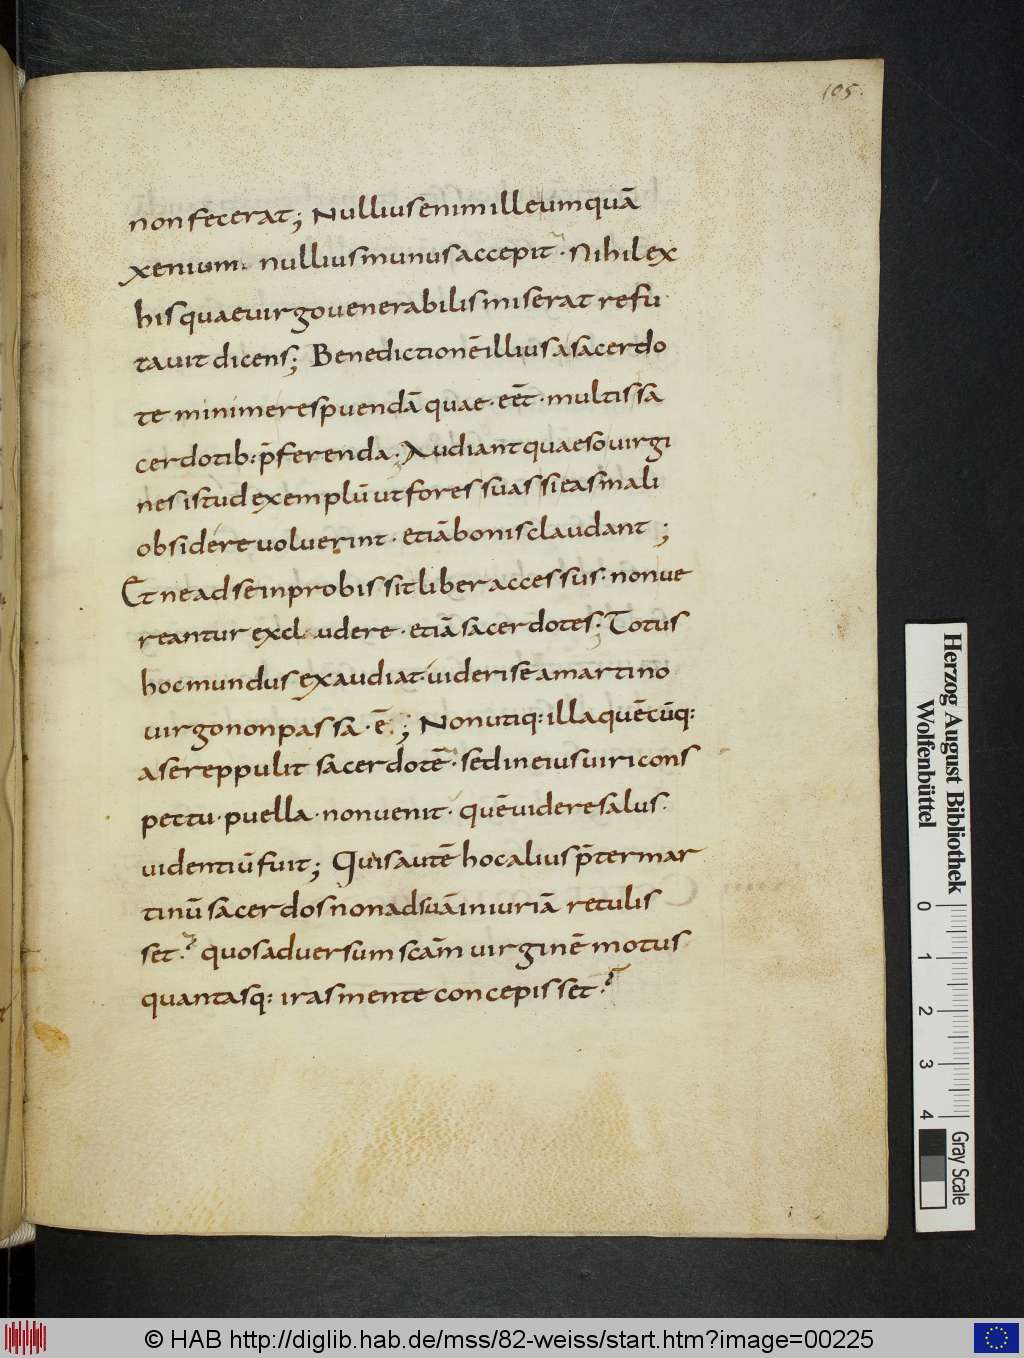 105.
non fecerat; Nullius enim ille umquā
xenium. nullius munus accepit. Nihil ex
his quae uirgo uenerabilis miserat refu
tauit dicens; Benedictionē illius a sacerdo
te minime respuendā quae. eēt. multis sa
cerdotib: p̄ferenda. Audiant quaeso uirgi
nes istud exemplū ut fores suas si eas mali
obsidere uoluerint. etiā bonis claudant;
Et ne ad se inprobis sit liber accessus. non ue
reantur excludere. etiā sacerdotes; Totus
hoc mundus exaudiat uideri se a martino
uirgo non passa. ē; Non utiq: illa quēcūq:
a se reppulit sacerdotē. sed in eius uiri cons
pectu. puella. non uenit. quē uidere salus.
uidentiū fuit; Quis autē hoc alius p̄ter mar
tinū sacerdos non ad suā iniuriā retulis
set.? quos aduersum scām uirginē motus
quantasq: iras mente concepisset.?
Herzog August Bibliothek
Wolfenbüttel
0 1 2 3 4
Gray Scale
© HAB http://diglib.hab.de/mss/82-weiss/start.htm?image=00225